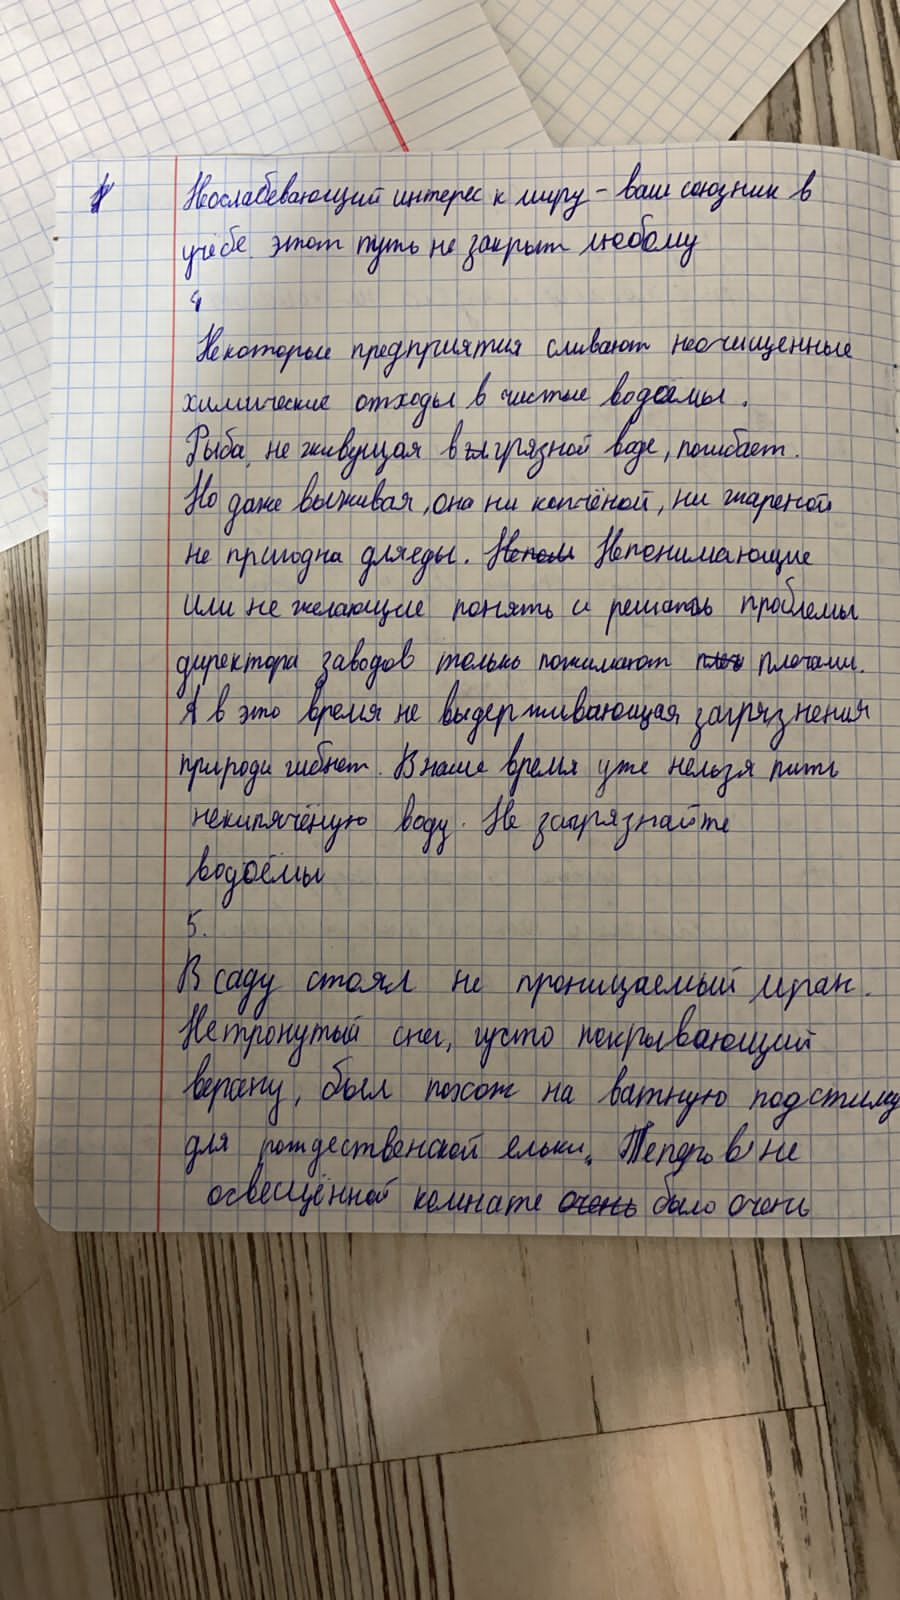 Неослабевающий интерес к миру – ваш союзник в
учёбе. этот путь не закрыт любому
4
Некоторые предприятия сливают неочищенные
химические отходы в чистые водоёмы.
Рыба, не живущая в грязной воде, погибает.
Но даже выживая, она ни копчёной, ни жареной
не пригодна для еды. Непом Непонимающие
или не желающие понять и решать проблемы
директора заводов только пожимают плеч плечами.
А в это время не выдерживающая загрязнения
природа гибнет. В наше время уже нельзя пить
некипячёную воду. Не загрязнайте
водоёмы
5.
В саду стоял не проницаемый мрак.
Нетронутый снег, густо покрывающий
верану, был похож на ватную подстилку
для рождественской ёлки. Теперь в не
освещённой комнате очень было очень